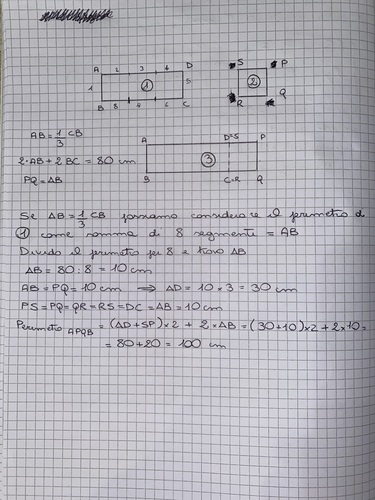 A 2 3 4 D
1 ① 5
B 8 7 6 C
S P
②
R Q
AB = 1/3 CB
2·AB + 2 BC = 80 cm
PQ = AB
A D≡S P
③
B C≡R Q
Se AB = 1/3 CB possiamo considerare il perimetro di
① come somma di 8 segmenti = AB
Divido il perimetro per 8 e trovo AB
AB = 80 : 8 = 10 cm
AB = PQ = 10 cm ⟹ AD = 10 × 3 = 30 cm
PS = PQ = QR = RS = DC = AB = 10 cm
Perimetro APQB = (AD + SP) × 2 + 2 × AB = (30+10) × 2 + 2 × 10 =
= 80 + 20 = 100 cm